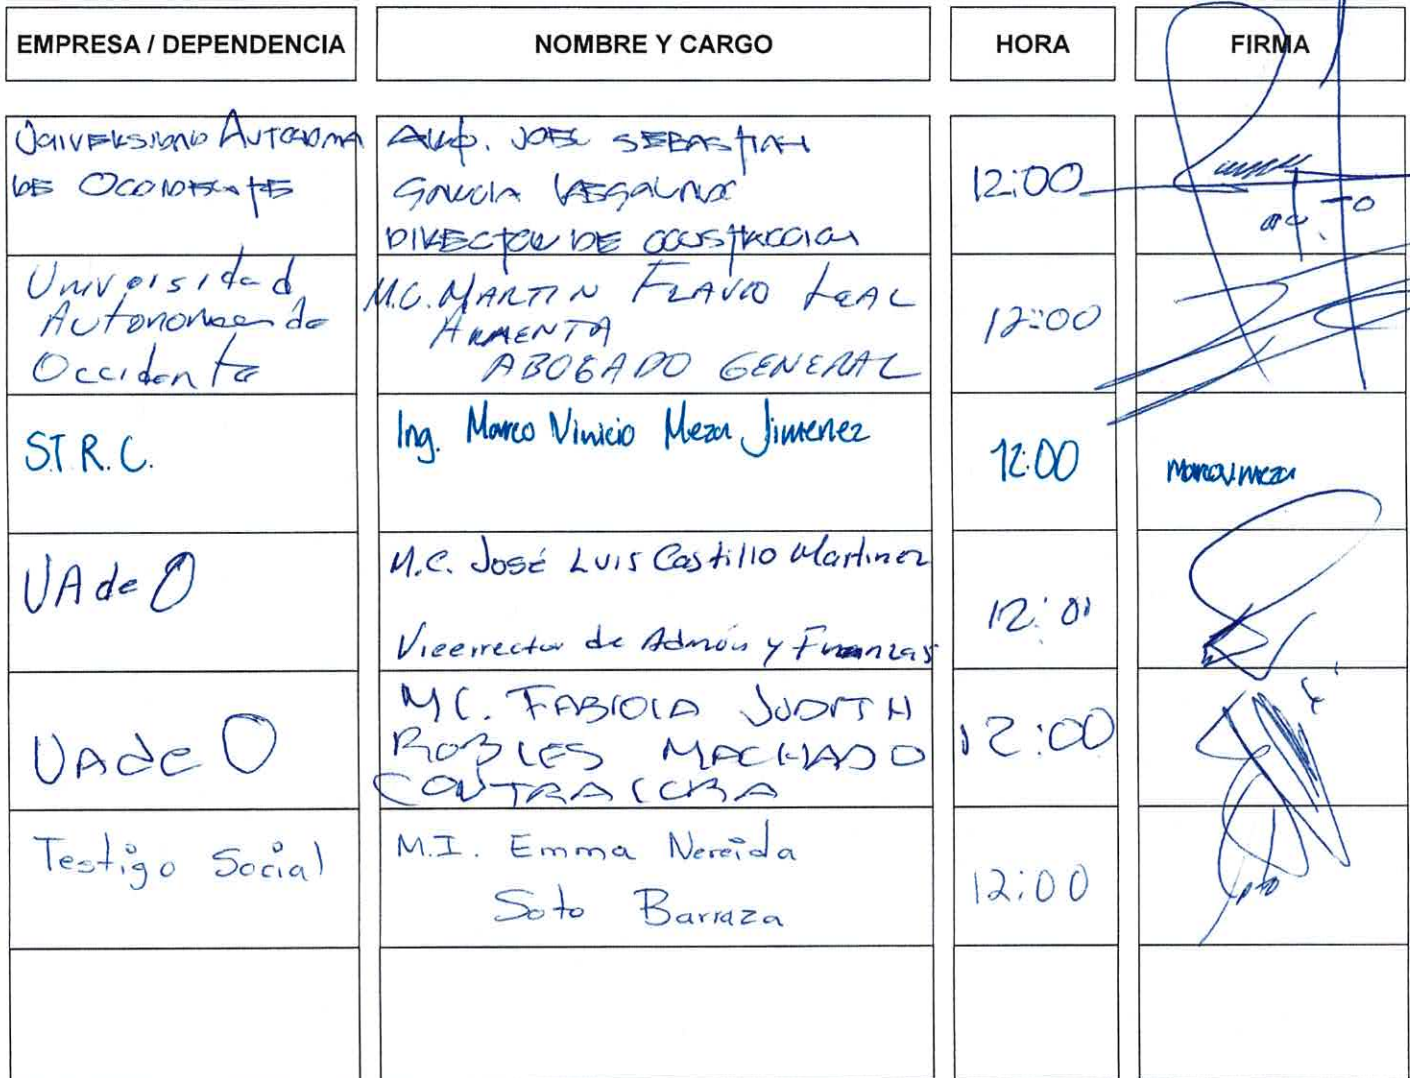 EMPRESA / DEPENDENCIA NOMBRE Y CARGO HORA FIRMA
UNIVERSIDAD AUTONOMA
DE OCCIDENTE
ARQ. JOEL SEBASTIAN
GARCIA
DIRECTOR DE CONSTRUCCION
12:00
Universidad
Autonoma de
Occidente
M.C. MARTIN FLAVIO LEAL
ARMENTA
ABOGADO GENERAL
12:00
S.T.R.C.
Ing. Marco Vinicio Meza Jimenez
12:00
UAdeO
M.C. José Luis Castillo Martinez
Vicerrector de Admón y Finanzas
12:01
UAdeO
MC. FABIOLA JUDITH
ROBLES MACHADO
CONTRALORA
12:00
Testigo Social
M.I. Emma Nereida
Soto Barraza
12:00